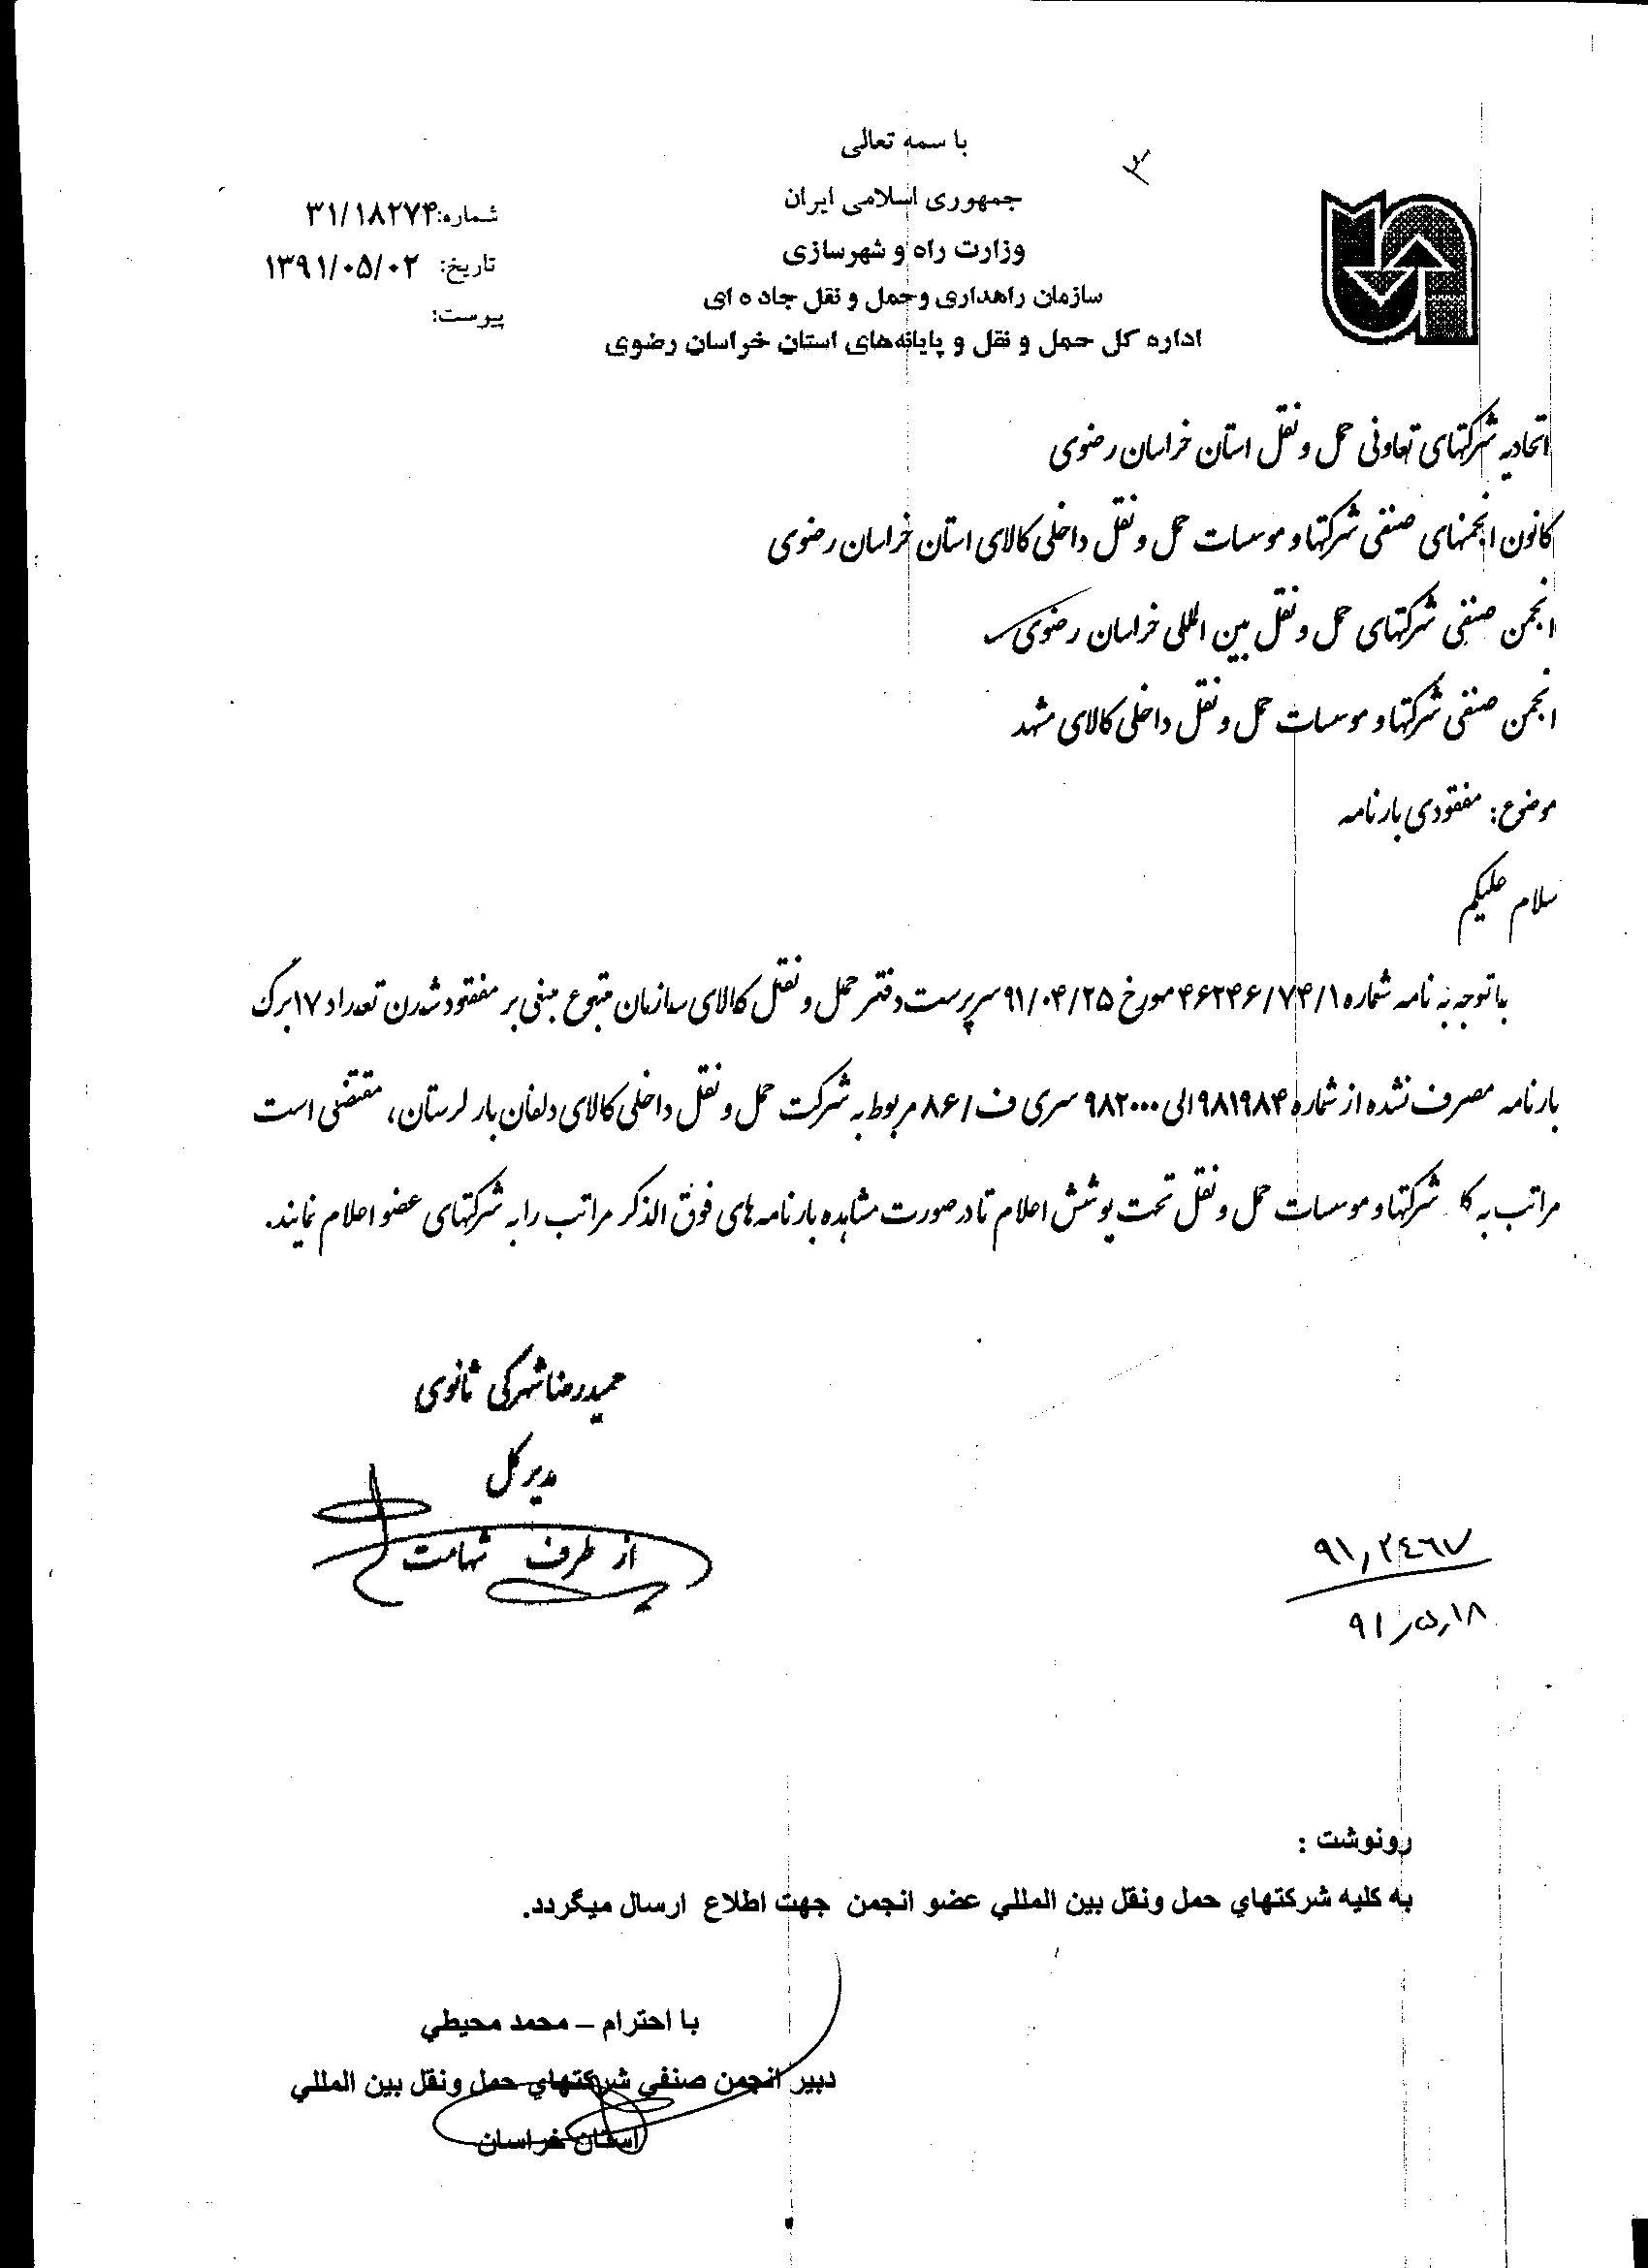 با سمه تعالی
جمهوری اسلامی ایران
وزارت راه و شهرسازی
سازمان راهداری وحمل و نقل جاده ای
اداره کل حمل و نقل و پایانه‌های استان خراسان رضوی
شماره: ۳۱/۱۸۲۷۴
تاریخ: ۱۳۹۱/۰۵/۰۲
پیوست:
اتحادیه شرکتهای تعاونی حمل و نقل استان خراسان رضوی
کانون انجمنهای صنفی شرکتها و موسسات حمل و نقل داخلی کالای استان خراسان رضوی
انجمن صنفی شرکتهای حمل و نقل بین المللی خراسان رضوی
انجمن صنفی شرکتها و موسسات حمل و نقل داخلی کالای مشهد
موضوع: مفقودی بارنامه
سلام علیکم
با توجه به نامه شماره ۴۶۲۴۶/۷۴/۱ مورخ ۹۱/۰۴/۲۵ سرپرست دفتر حمل و نقل کالای سازمان متبوع مبنی بر مفقود شدن تعداد ۱۷ برگ
بارنامه مصرف نشده از شماره ۹۸۱۹۸۴ الی ۹۸۲۰۰۰ سری ف/۸۶ مربوط به شرکت حمل و نقل داخلی کالای دلفان بار لرستان، مقتضی است
مراتب به شرکتها و موسسات حمل و نقل تحت پوشش اعلام تا در صورت مشاهده بارنامه های فوق الذکر مراتب را به شرکتهای عضو اعلام نمایند.
حمیدرضا شهرکی ثانوی
مدیر کل
از طرف شهامت
۹۱٫۲٤٦۷
۹۱٫۵٫۱۸
رونوشت :
به کلیه شرکتهاي حمل ونقل بین المللي عضو انجمن جهت اطلاع ارسال میگردد.
با احترام – محمد محیطي
دبیر انجمن صنفي شرکتهاي حمل ونقل بین المللي
استان خراسان